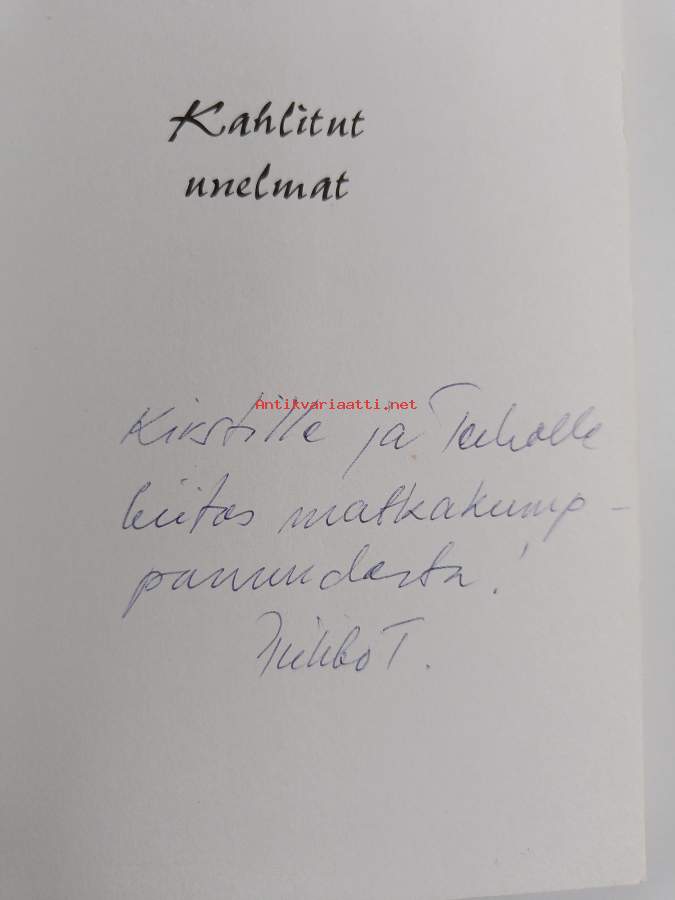 Kahlitut
unelmat
Antikvariaatti.net
Kirstille ja Teholle
kiitos matkakump-
panuudesta!
T.